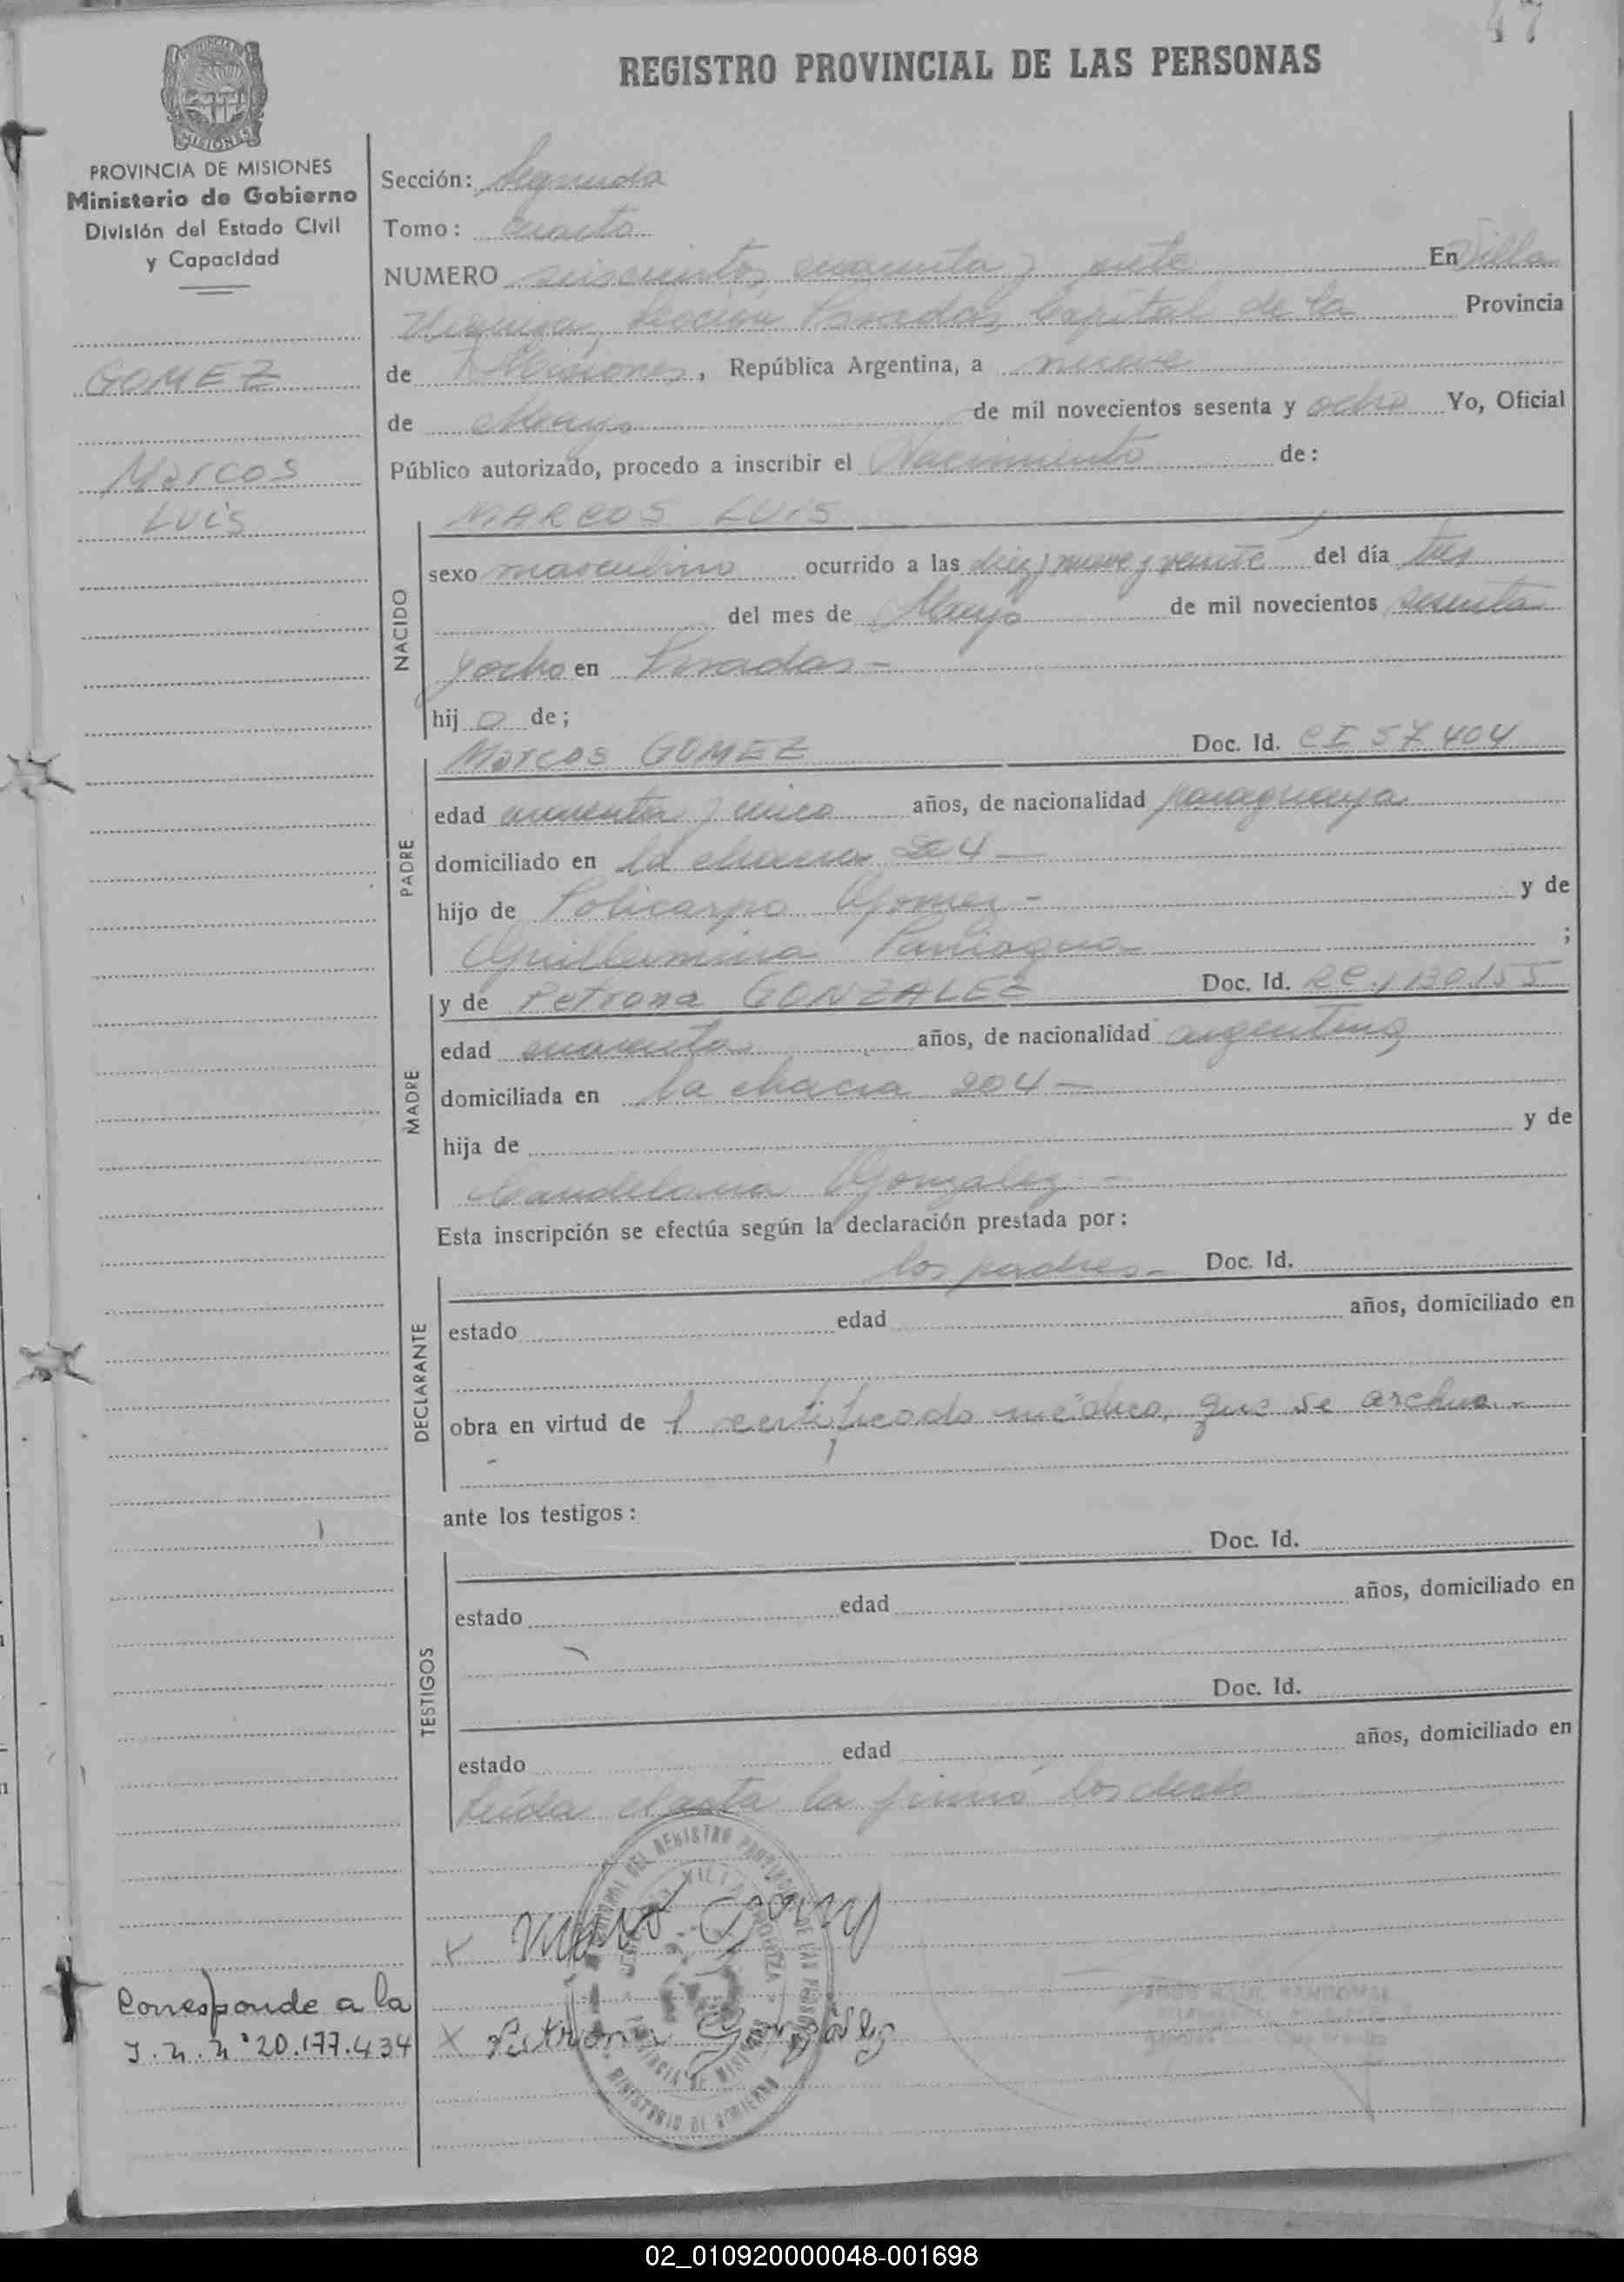 47
REGISTRO PROVINCIAL DE LAS PERSONAS
PROVINCIA DE MISIONES
Ministerio de Gobierno
División del Estado Civil
y Capacidad
GOMEZ
Marcos
Luis
Sección: Segunda
Tomo: cuarto
NUMERO seiscientos cuarenta y siete En Villa
Urquiza, Sección Posadas, Capital de la Provincia
de Misiones, República Argentina, a nueve
de Mayo de mil novecientos sesenta y ocho Yo, Oficial
Público autorizado, procedo a inscribir el Nacimiento de:
NACIDO
MARCOS LUIS
sexo masculino ocurrido a las diez y nueve y veinte del día tres
del mes de Mayo de mil novecientos sesenta
y ocho en Posadas -
hij o de;
PADRE
Marcos GOMEZ Doc. Id. CI 57.404
edad cuarenta y cinco años, de nacionalidad paraguaya
domiciliado en la chacra 204 —
hijo de Policarpo Gomez - y de
Guillermina Paniagua ;
MADRE
y de Petrona GONZALEZ Doc. Id. RC.1130.155
edad cuarenta años, de nacionalidad argentina
domiciliada en la chacra 204 —
hija de y de
Candelaria Gonzalez -
Esta inscripción se efectúa según la declaración prestada por:
DECLARANTE
los padres - Doc. Id.
estado edad años, domiciliado en
obra en virtud de l certificado médico, que se archiva. -
ante los testigos:
TESTIGOS
Doc. Id.
estado edad años, domiciliado en
Doc. Id.
estado edad años, domiciliado en
Leída el acta la firmó los
DEL REGISTRO PROVINCIAL DE LAS PERSONAS
VILLA URQUIZA
PROVINCIA DE MISIONES
MINISTERIO DE GOBIERNO
x Marcos Gomez
x Petrona Gonzalez
RAUL SANDOVAL
Corresponde a la
I.N.N° 20.177.434
02_010920000048-001698